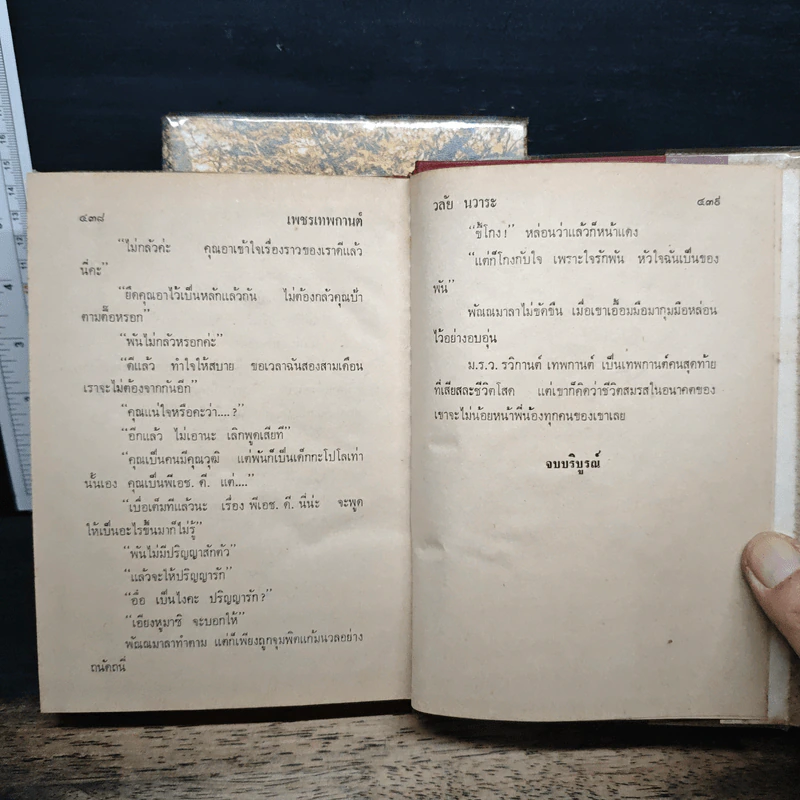 ๔๓๘ เพชรเทพกานต์
“ไม่กลัวค่ะ คุณอาเข้าใจเรื่องราวของเราดีแล้ว
นี่คะ”
“ยึดคุณอาไว้เป็นหลักแล้วกัน ไม่ต้องกลัวคุณป้า
ตามต็อหรอก”
“พันไม่กลัวหรอกค่ะ”
“ดีแล้ว ทำใจให้สบาย ขอเวลาฉันสองสามเดือน
เราจะไม่ต้องจากกันอีก”
“คุณแน่ใจหรือคะว่า....?”
“อีกแล้ว ไม่เอานะ เลิกพูดเสียที”
“คุณเป็นคนมีคุณวุฒิ แต่พันก็เป็นเด็กกะโปโลเท่า
นั้นเอง คุณเป็นพีเอช. ดี. แต่....”
“เบื่อเต็มทีแล้วนะ เรื่อง พีเอช. ดี. นี่น่ะ จะพูด
ให้เป็นอะไรขึ้นมาก็ไม่รู้”
“พันไม่มีปริญญาสักตัว”
“แล้วจะให้ปริญญารัก”
“อื๋อ เป็นไงคะ ปริญญารัก?”
“เอียงหูมาซิ จะบอกให้”
พัณณมาลาทำตาม แต่ก็เพียงถูกจุมพิตแก้มนวลอย่าง
ถนัดถนี่
วลัย นวาระ ๔๓๙
“ขี้โกง!” หล่อนว่าแล้วก็หน้าแดง
“แต่ก็โกงกับใจ เพราะใจรักพัน หัวใจฉันเป็นของ
พัน”
พัณณมาลาไม่ขัดขืน เมื่อเขาเอื้อมมือมากุมมือหล่อน
ไว้อย่างอบอุ่น
ม.ร.ว. รวิกานต์ เทพกานต์ เป็นเทพกานต์คนสุดท้าย
ที่เสียสละชีวิตโสด แต่เขาก็คิดว่าชีวิตสมรสในอนาคตของ
เขาจะไม่น้อยหน้าพี่น้องทุกคนของเขาเลย
จบบริบูรณ์